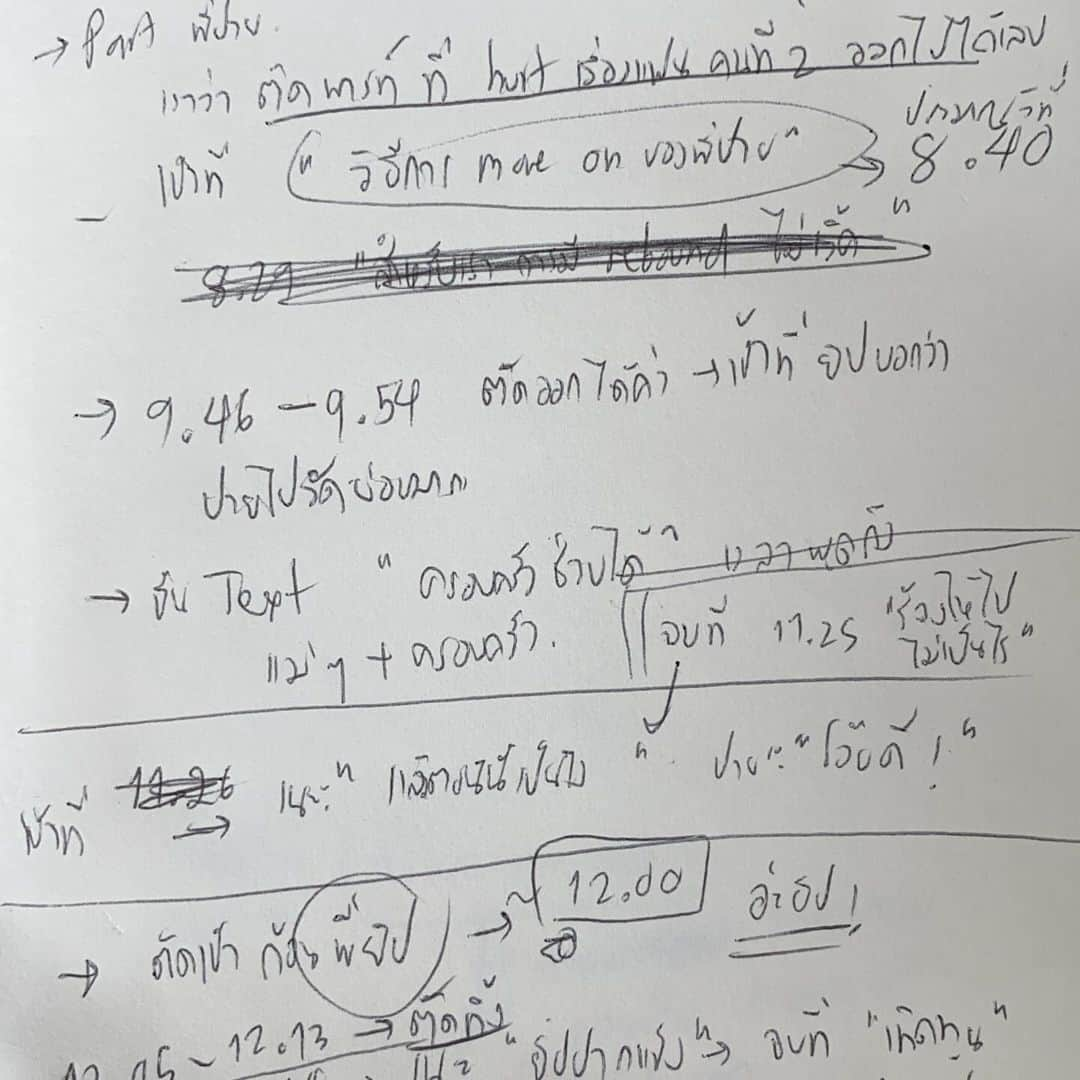 → Part พี่ปาย.
เราว่า ตัดพาร์ท ที่ hurt เรื่องแฟนคนที่ 2 ออกไปได้เลย
เข้าที่ "วิธีการ move on ของพี่ปาย" → ประมาณวิที่ 8.40
8.29 "สำหรับเรา การมี rebound ไม่เวิ้ค"
→ 9.46 – 9.54 ตัดออกได้ค่า → เข้าที่ อุปบอกว่า
ปายไปวัดบ่อยมาก
→ ขึ้น Text "ครอบครัวช่วยได้" เวลาพูดถึง
แม่ๆ + ครอบครัว. จบที่ 11.25 "ร้องไห้ไป ไม่เป็นไร"
เข้าที่ 11.26 → เนะ: "แล้วตอนนี้เป็นไง" ปาย: "โอ้ยดี!"
→ ตัดเข้า ก้อน พี่ยิป → ~ 12.00
12.13 → ตัดทิ้ง
→ จบที่ "เทิดทูน"